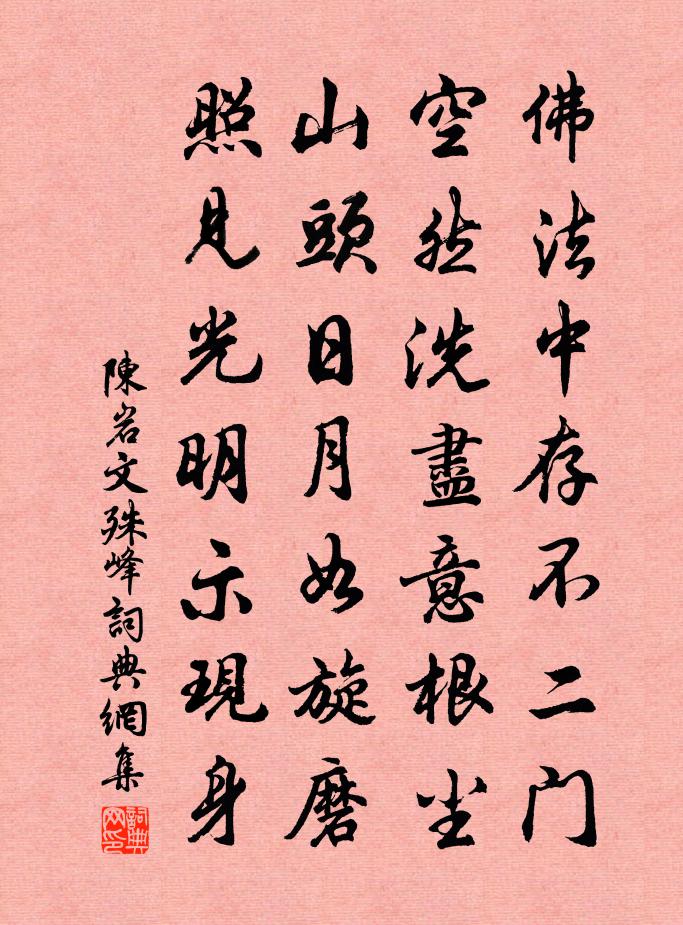 佛法中存不二门
空然洗盡意根尘
山頭日月如旋磨
照見光明示現身
陳岩文殊峰詞典網集
詞典网印